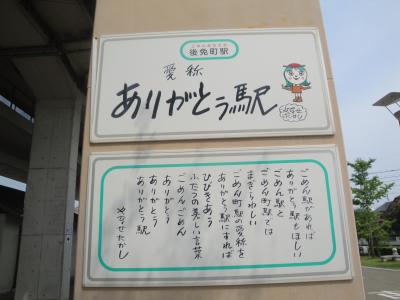 ごめんまちえき
後免町駅
愛称
ありがとう駅
やなせたかし
ごめん駅があれば
ありがとう駅もほしい
ごめん駅と
ごめん町駅では
まぎらわしい
ごめん町駅の愛称を
ありがとう駅にすれば
ひびきあう
ふたつの美しい言葉
ごめんごめん
ありがとう
ありがとう
ありがとう駅
やなせたかし